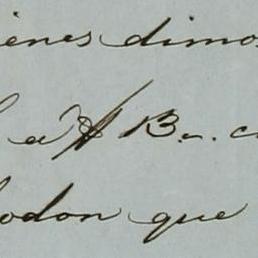 ienes dimos
a B.
odon que